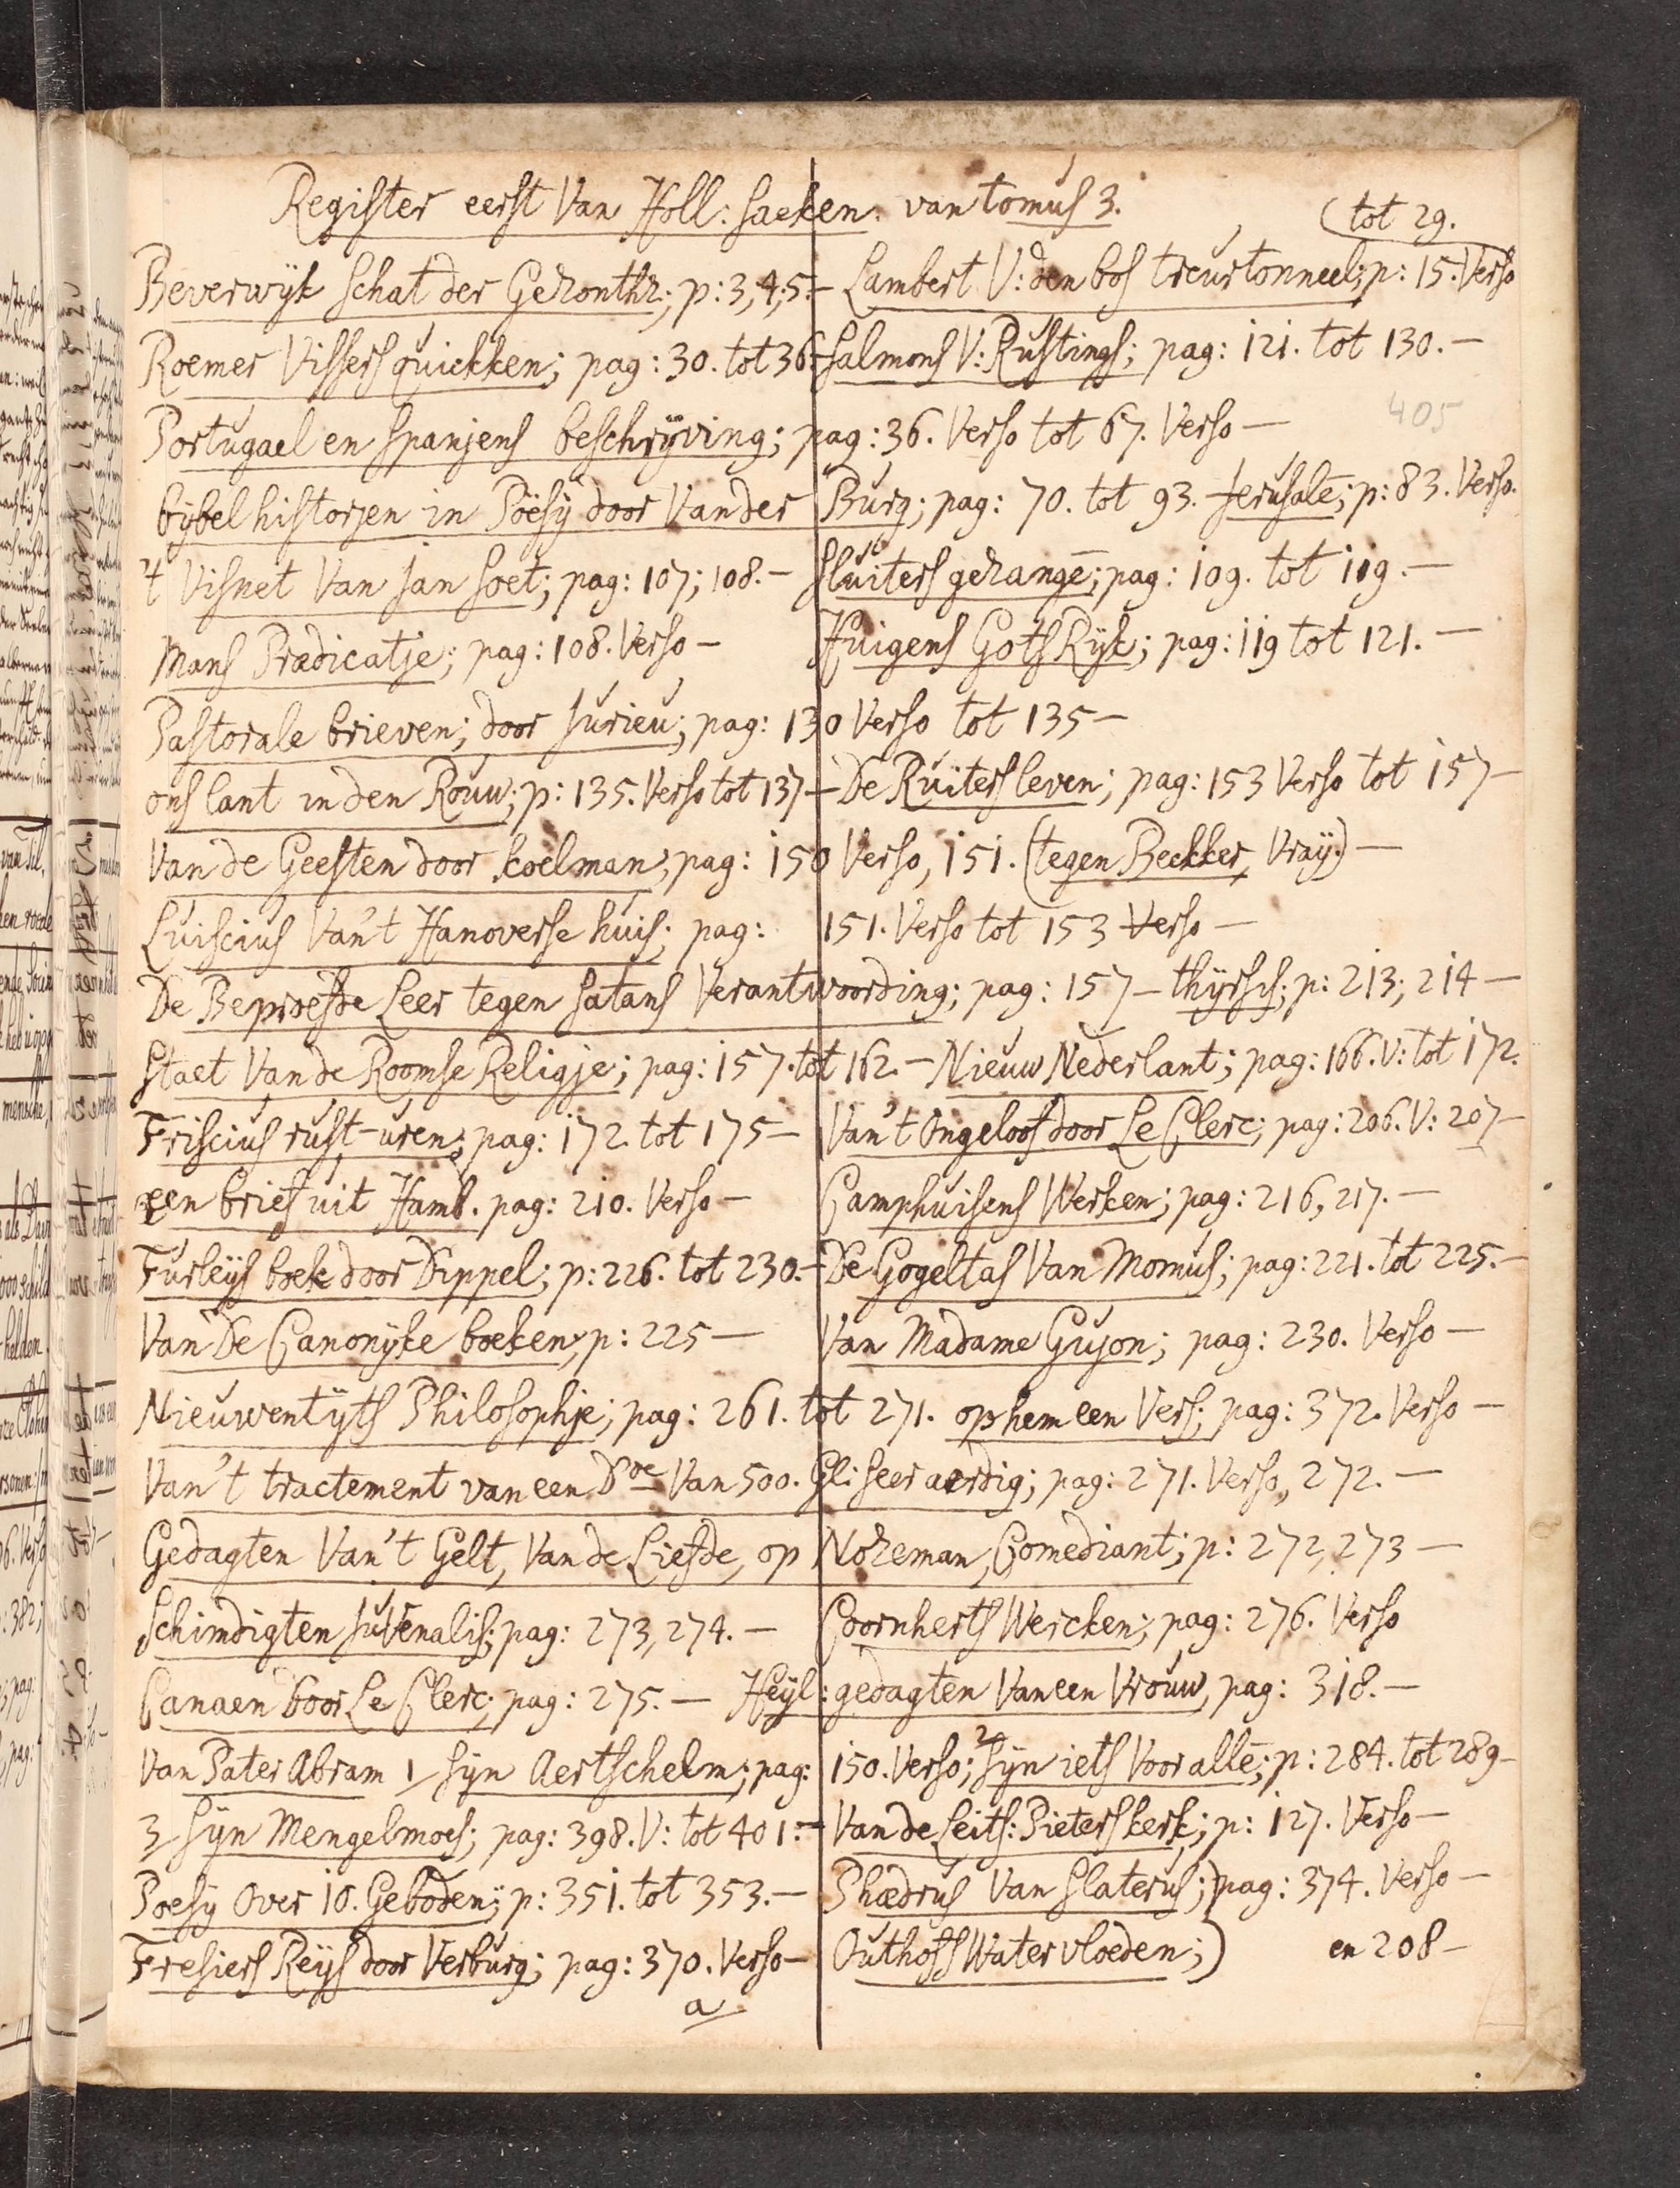 Register eerst Van Holl: saeken. van tomus 3.
(tot 29.
Beverwÿk schat der Gezonthz; p: 3; 4; 5.— Lambert V: den bos treurtonneel; p: 15. Verso
Roemer Vissers quickken; pag: 30. tot 36.— Salmons V: Rustings; pag: 121. tot 130.—
405
Portugael en Spanjens beschrÿving; pag: 36. Verso tot 67. Verso—
bÿbel historjen in Pöesÿ door Vander Burg; pag: 70. tot 93. Jerusalē; p: 83. Verso.
't Visnet Van Jan Soet; pag: 107; 108.— Sluiters gezangē; pag: 109. tot 119.—
Mans Prædicatje; pag: 108. Verso— Huigens Gots Rÿk; pag: 119 tot 121.—
Pastorale brieven; door Jurieu; pag: 130 Verso tot 135—
ons lant in den Rouw; p: 135. Verso tot 137— De Ruiters leven; pag: 153 Verso tot 157—
Van de Geesten door koelman; pag: 150 Verso, 151. (tegen Beckker, Vraÿ.)—
Luiscius Van't Hanoverse huis; pag: 151. Verso tot 153 Verso—
De Beproefde Leer tegen Satans Verantwoording; pag: 157— thÿrsis; p: 213; 214—
Staet Van de Roomse Religje; pag: 157. tot 162.— Nieuw Nederlant; pag: 166. V: tot 172.
Friscius rust-uren; pag: 172. tot 175— Van't Ongeloof door Le Clerc; pag: 206. V: 207—
een brief uit Hamb. pag: 210. Verso— Camphuisens Werken; pag: 216, 217.—
Furleÿs boek door Dippel; p: 226. tot 230.— De Gogeltas Van Momus; pag: 221. tot 225.—
Van De Canonÿke boeken; p: 225— Van Madame Gujon; pag: 230. Verso—
Nieuwentÿts Philosophje; pag: 261. tot 271. op hem een Vers; pag: 372. Verso—
Van't tractement van een Dne Van 500. Gl: seer aerdig; pag: 271. Verso, 272.—
Gedagten Van't Gelt, Van de Liefde, op Nozeman, Comediant; p: 272, 273—
Schimdigten Juvenalis; pag: 273, 274.— Coornherts Wercken; pag: 276. Verso
Canaen door Le Clerc; pag: 275.— Heÿl: gedagten Van een Vrouw, pag: 318.—
Van Pater Abram 1 sÿn Aertschelm; pag: 150. Verso; 2 Sÿn iets Voor allē; p: 284. tot 289—
3 Sÿn Mengelmoes; pag: 398. V: tot 401.— Van de Leits: Pieterskerk; p: 127. Verso—
Poesÿ Over 10. Geboden; p: 351. tot 353.— Phædrus Van Slaterus;) pag: 374. Verso—
Fresiers Reÿs door Verburg; pag: 370. Verso— Outhofs Watervloeden;) en 208—
a